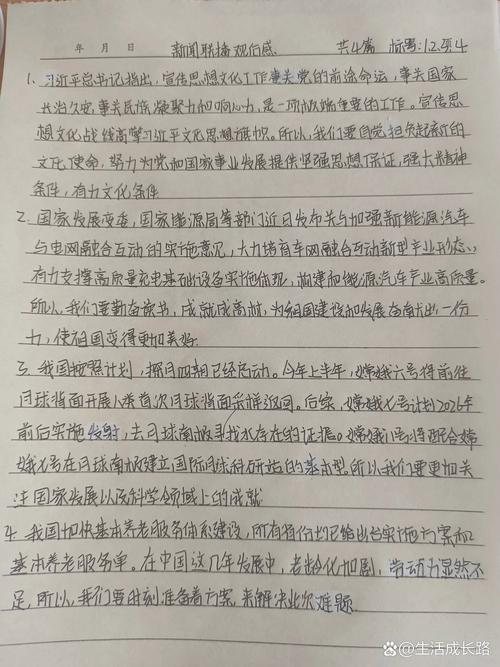 年 月 日 新闻联播观后感 共4篇 标号:1.2.3.4
1、习近平总书记指出,宣传思想文化工作事关党的前途命运,事关国家
长治久安,事关民族凝聚力和向心力,是一项极端重要的工作。宣传思
想文化战线高擎习近平文化思想旗帜。所以,我们要自觉担负起新的
文化使命,努力为党和国家事业发展提供坚强思想保证,强大精神
条件,有力文化条件
2、国家发展变委,国家能源局等部门近日发布关与加强新能源汽车
与电网融合互动的实施意见,大力培育车网融合互动新型产业形态,
有力支撑高质量充电基础设备实施体现,构建和能源汽车产业高质量。
所以我们要勤奋读书,成就成高材,为祖国建设和发展奋献出一份
力,使祖国变得更加美好
3、我国按照计划,探月四期已经启动。今年上半年,嫦娥六号将前往
月球背面开展人类首次月球背面采样返回。后案,嫦娥七号计划2026年
前后实施发射,去月球南极寻找水存在的证据。嫦娥八号将配合嫦
娥七号在月球南极建立国际月球科研站的基本型。所以我们要更加关
注国家发展以及科学领域上的成就
4、我国加快基本养老服务体系建设,所有省份均已给出台实施方案和
基本养老服务单。在中国这几年发展中,老龄化加剧,劳动力显然不
足,所以,我们要时刻准备着方案,来解决此次难题.
@生活成长路